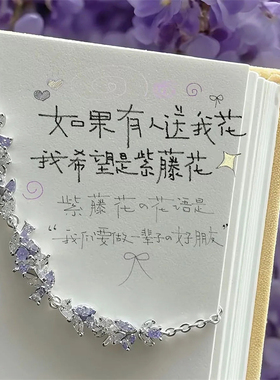 如果有人送我花
我希望是紫藤花
紫藤花の花语是
“我们要做一辈子の好朋友”